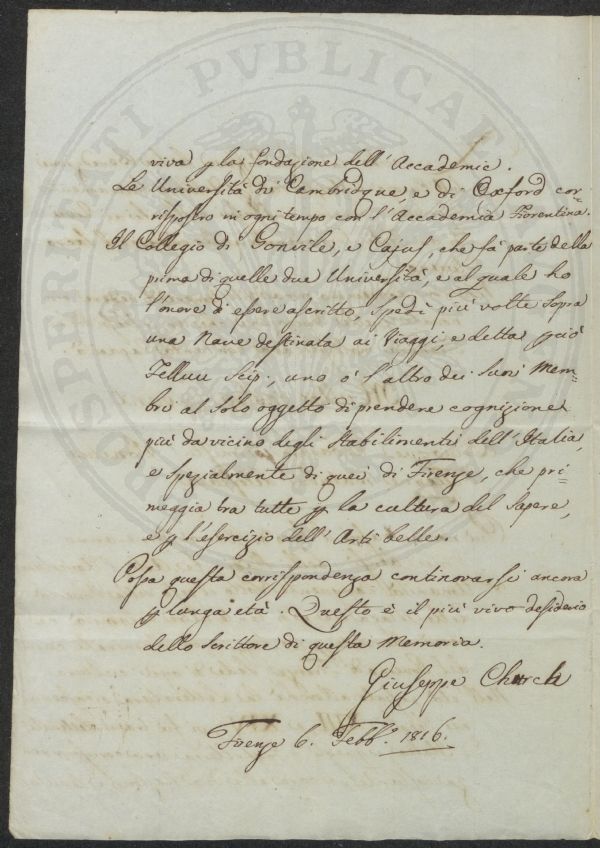 viva p la fondazione dell'Accademie.
Le Università di Cambridgua, e di Oxford cor=
risposero in ogni tempo con l'Accademia Fiorentina.
Il Collegio di Gonvile, e Cajus, che fà parte della
prima di quelle due Università, e al quale ho
l'onore d'essere ascritto, spedì più volte sopra
una Nave destinata ai Viaggi, e detta pciò
Felluu Scip., uno ò l'altro dei suoi Mem=
bri al solo oggetto di prendere cognizione
più da vicino degli stabilimenti dell'Italia,
e spezialmente di quei di Firenze, che pri=
meggia tra tutte p la cultura del sapere,
e p l'esercizio dell'Arti belle.
Possa questa corrispondenza continovarsi ancora
p lunga età. Questo è il più vivo desiderio
dello scrittore di questa Memoria.
Giuseppe Church
Firenze 6. Febb.º 1816.
PROSPERITATI PVBLICAE